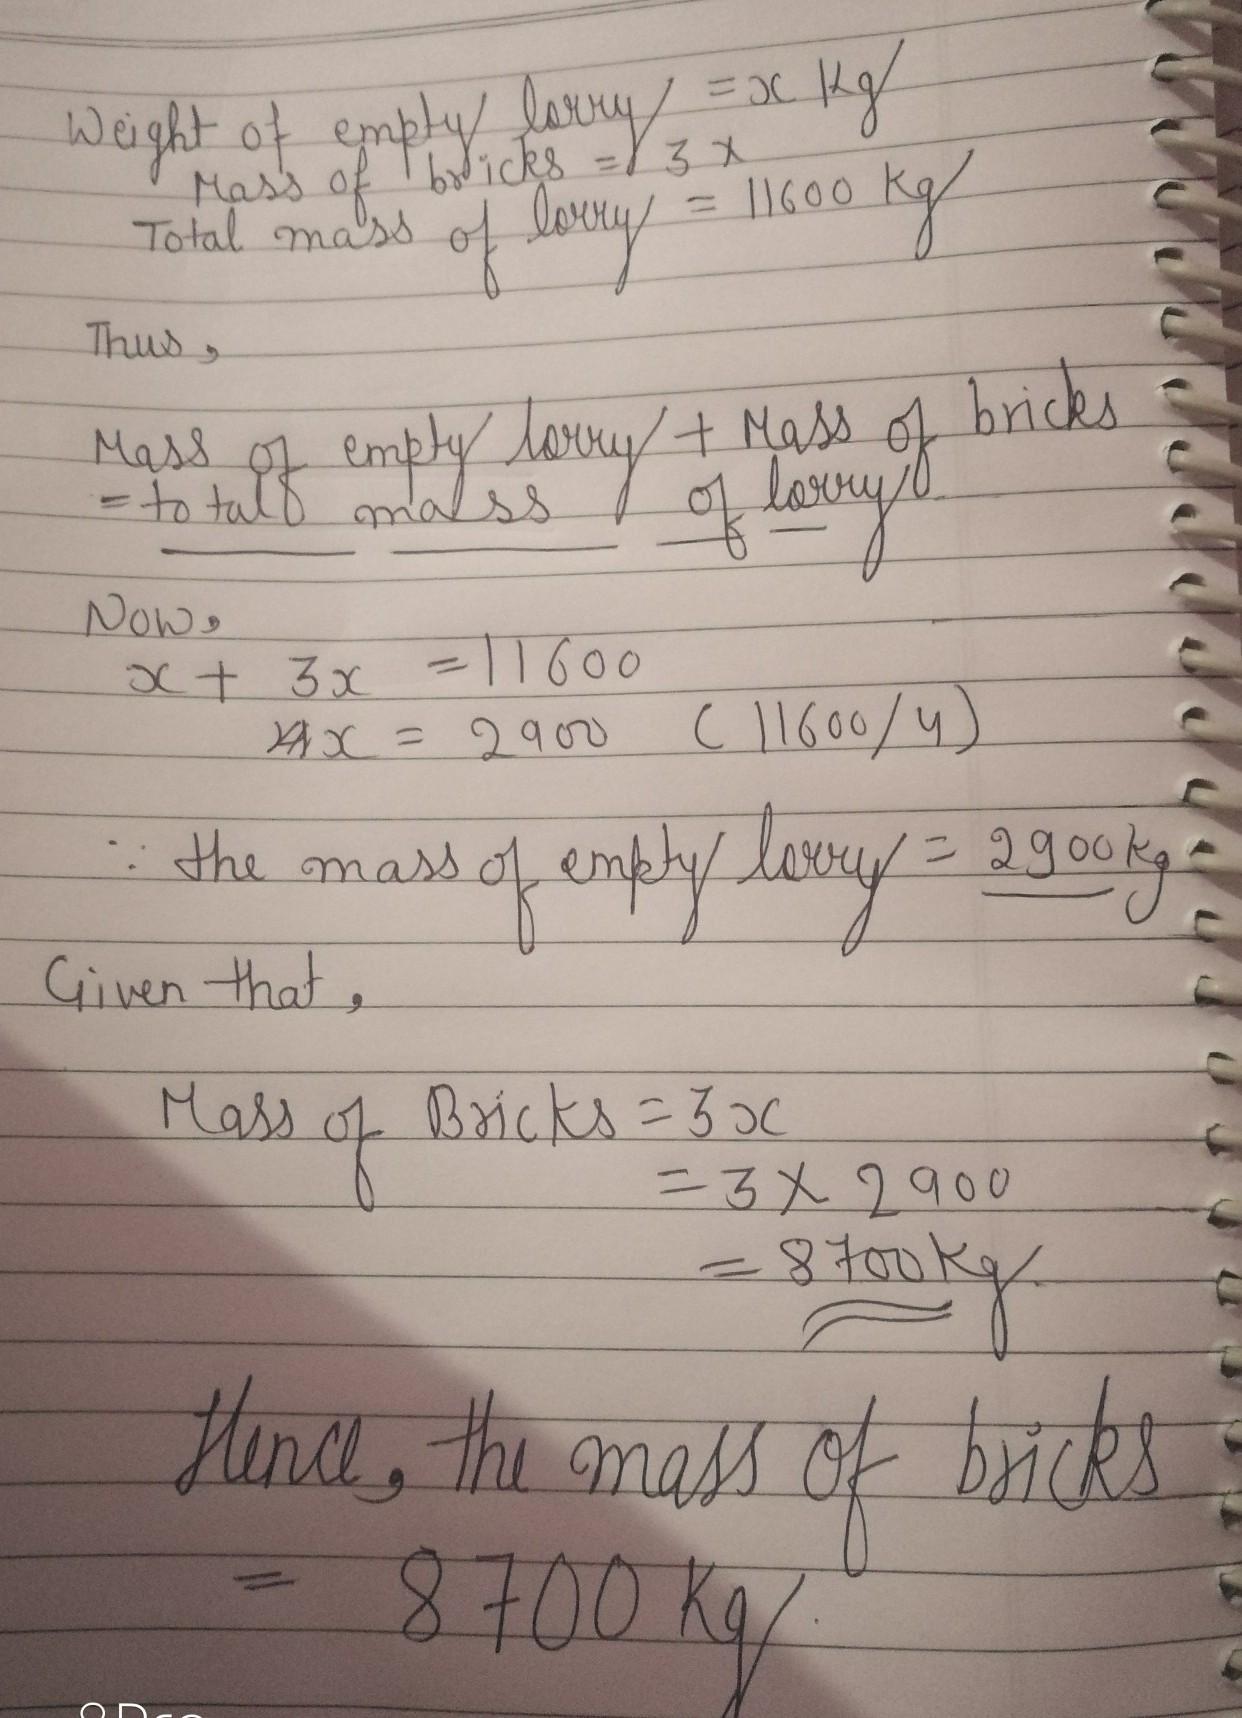 Weight of empty lorry = x Kg
Mass of bricks = 3x
Total mass of lorry = 11600 Kg
Thus,
Mass of empty lorry + Mass of bricks
= total mass of lorry
Now,
x + 3x = 11600
x = 2900 (11600/4)
∵ the mass of empty lorry = 2900kg
Given that,
Mass of Bricks = 3x
= 3 X 2900
= 8700 Kg.
Hence, the mass of bricks
= 8700 Kg.